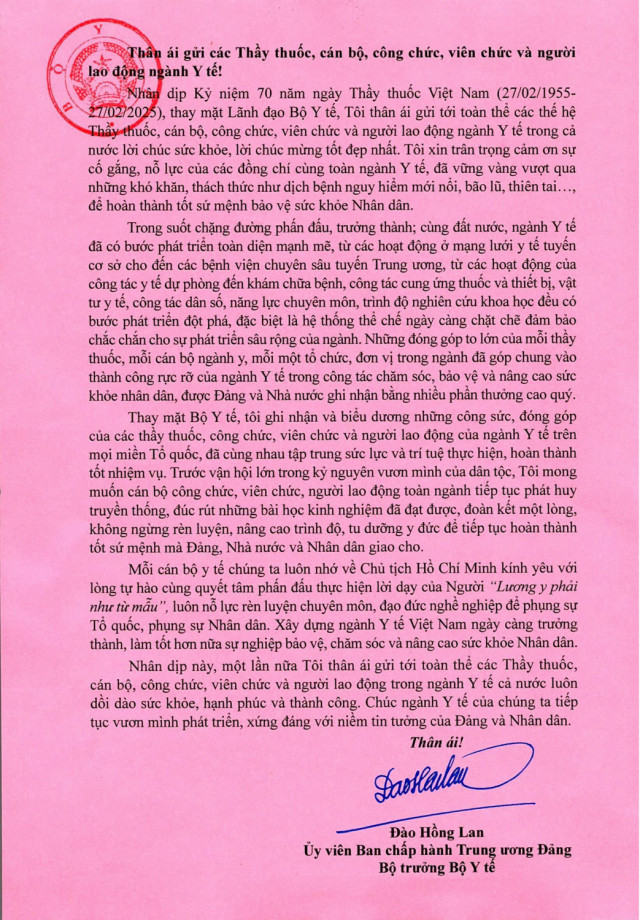 BỘ Y
Thân ái gửi các Thầy thuốc, cán bộ, công chức, viên chức và người
lao động ngành Y tế!
Nhân dịp Kỷ niệm 70 năm ngày Thầy thuốc Việt Nam (27/02/1955-
27/02/2025), thay mặt Lãnh đạo Bộ Y tế, Tôi thân ái gửi tới toàn thể các thế hệ
Thầy thuốc, cán bộ, công chức, viên chức và người lao động ngành Y tế trong cả
nước lời chúc sức khỏe, lời chúc mừng tốt đẹp nhất. Tôi xin trân trọng cảm ơn sự
cố gắng, nỗ lực của các đồng chí cùng toàn ngành Y tế, đã vững vàng vượt qua
những khó khăn, thách thức như dịch bệnh nguy hiểm mới nổi, bão lũ, thiên tai…,
để hoàn thành tốt sứ mệnh bảo vệ sức khỏe Nhân dân.
Trong suốt chặng đường phấn đấu, trưởng thành; cùng đất nước, ngành Y tế
đã có bước phát triển toàn diện mạnh mẽ, từ các hoạt động ở mạng lưới y tế tuyến
cơ sở cho đến các bệnh viện chuyên sâu tuyến Trung ương, từ các hoạt động của
công tác y tế dự phòng đến khám chữa bệnh, công tác cung ứng thuốc và thiết bị, vật
tư y tế, công tác dân số, năng lực chuyên môn, trình độ nghiên cứu khoa học đều có
bước phát triển đột phá, đặc biệt là hệ thống thể chế ngày càng chặt chẽ đảm bảo
chắc chắn cho sự phát triển sâu rộng của ngành. Những đóng góp to lớn của mỗi thầy
thuốc, mỗi cán bộ ngành y, mỗi một tổ chức, đơn vị trong ngành đã góp chung vào
thành công rực rỡ của ngành Y tế trong công tác chăm sóc, bảo vệ và nâng cao sức
khỏe nhân dân, được Đảng và Nhà nước ghi nhận bằng nhiều phần thưởng cao quý.
Thay mặt Bộ Y tế, tôi ghi nhận và biểu dương những công sức, đóng góp
của các thầy thuốc, công chức, viên chức và người lao động của ngành Y tế trên
mọi miền Tổ quốc, đã cùng nhau tập trung sức lực và trí tuệ thực hiện, hoàn thành
tốt nhiệm vụ. Trước vận hội lớn trong kỷ nguyên vươn mình của dân tộc, Tôi mong
muốn cán bộ công chức, viên chức, người lao động toàn ngành tiếp tục phát huy
truyền thống, đúc rút những bài học kinh nghiệm đã đạt được, đoàn kết một lòng,
không ngừng rèn luyện, nâng cao trình độ, tu dưỡng y đức để tiếp tục hoàn thành
tốt sứ mệnh mà Đảng, Nhà nước và Nhân dân giao cho.
Mỗi cán bộ y tế chúng ta luôn nhớ về Chủ tịch Hồ Chí Minh kính yêu với
lòng tự hào cùng quyết tâm phấn đấu thực hiện lời dạy của Người “Lương y phải
như từ mẫu”, luôn nỗ lực rèn luyện chuyên môn, đạo đức nghề nghiệp để phụng sự
Tổ quốc, phụng sự Nhân dân. Xây dựng ngành Y tế Việt Nam ngày càng trưởng
thành, làm tốt hơn nữa sự nghiệp bảo vệ, chăm sóc và nâng cao sức khỏe Nhân dân.
Nhân dịp này, một lần nữa Tôi thân ái gửi tới toàn thể các Thầy thuốc,
cán bộ, công chức, viên chức và người lao động trong ngành Y tế cả nước luôn
dồi dào sức khỏe, hạnh phúc và thành công. Chúc ngành Y tế của chúng ta tiếp
tục vươn mình phát triển, xứng đáng với niềm tin tưởng của Đảng và Nhân dân.
Thân ái!
Daohailan
Đào Hồng Lan
Ủy viên Ban chấp hành Trung ương Đảng
Bộ trưởng Bộ Y tế